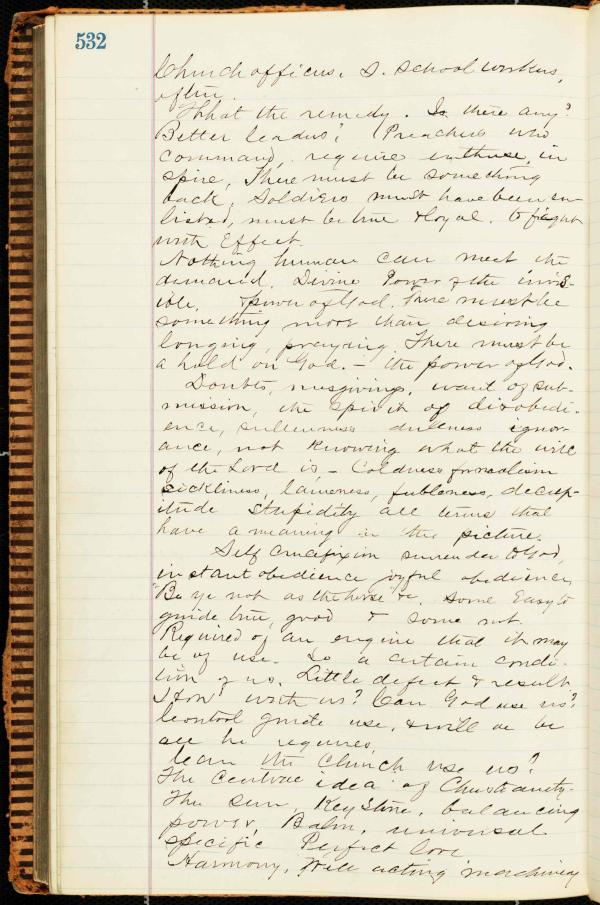 532
Church officers, S. School workers,
often.
What the remedy. Is there any?
Better leaders? Preachers who
command, require enthuse, in
spire, There must be something
back, Soldiers must have been en-
listed, must be true & loyal. to fight
with Effect.
Nothing human can meet the
demand. Divine Power of the invis-
ible. Power of God. There must be
something more than desiring
longing, praying There must be
a hold on God. – the power of God.
Doubts, misgivings, want of sub-
mission, the spirit of disobedi-
ence, sullenness dullness ignor-
ance, not knowing what the will
of the Lord is – Coldness formalism
sickliness, lameness, feebleness, decrep-
itude stupidity all terms that
have a meaning in this picture.
Self crucifixion surrender to God,
instant obedience joyful obedience
"Be ye not as the horse" &c. Some Easy to
guide true, good & some not.
Required of an engine that it may
be of use. So a certain condi-
tion of us. Little defect & result
How with us? Can God use us?
Control guide use, & will we be
all he requires.
Can the Church use us?
The Central idea of Christianity.
The Sun, Key Stone, balancing
power, Balm, universal
specific Perfect love
Harmony. Well acting machinery